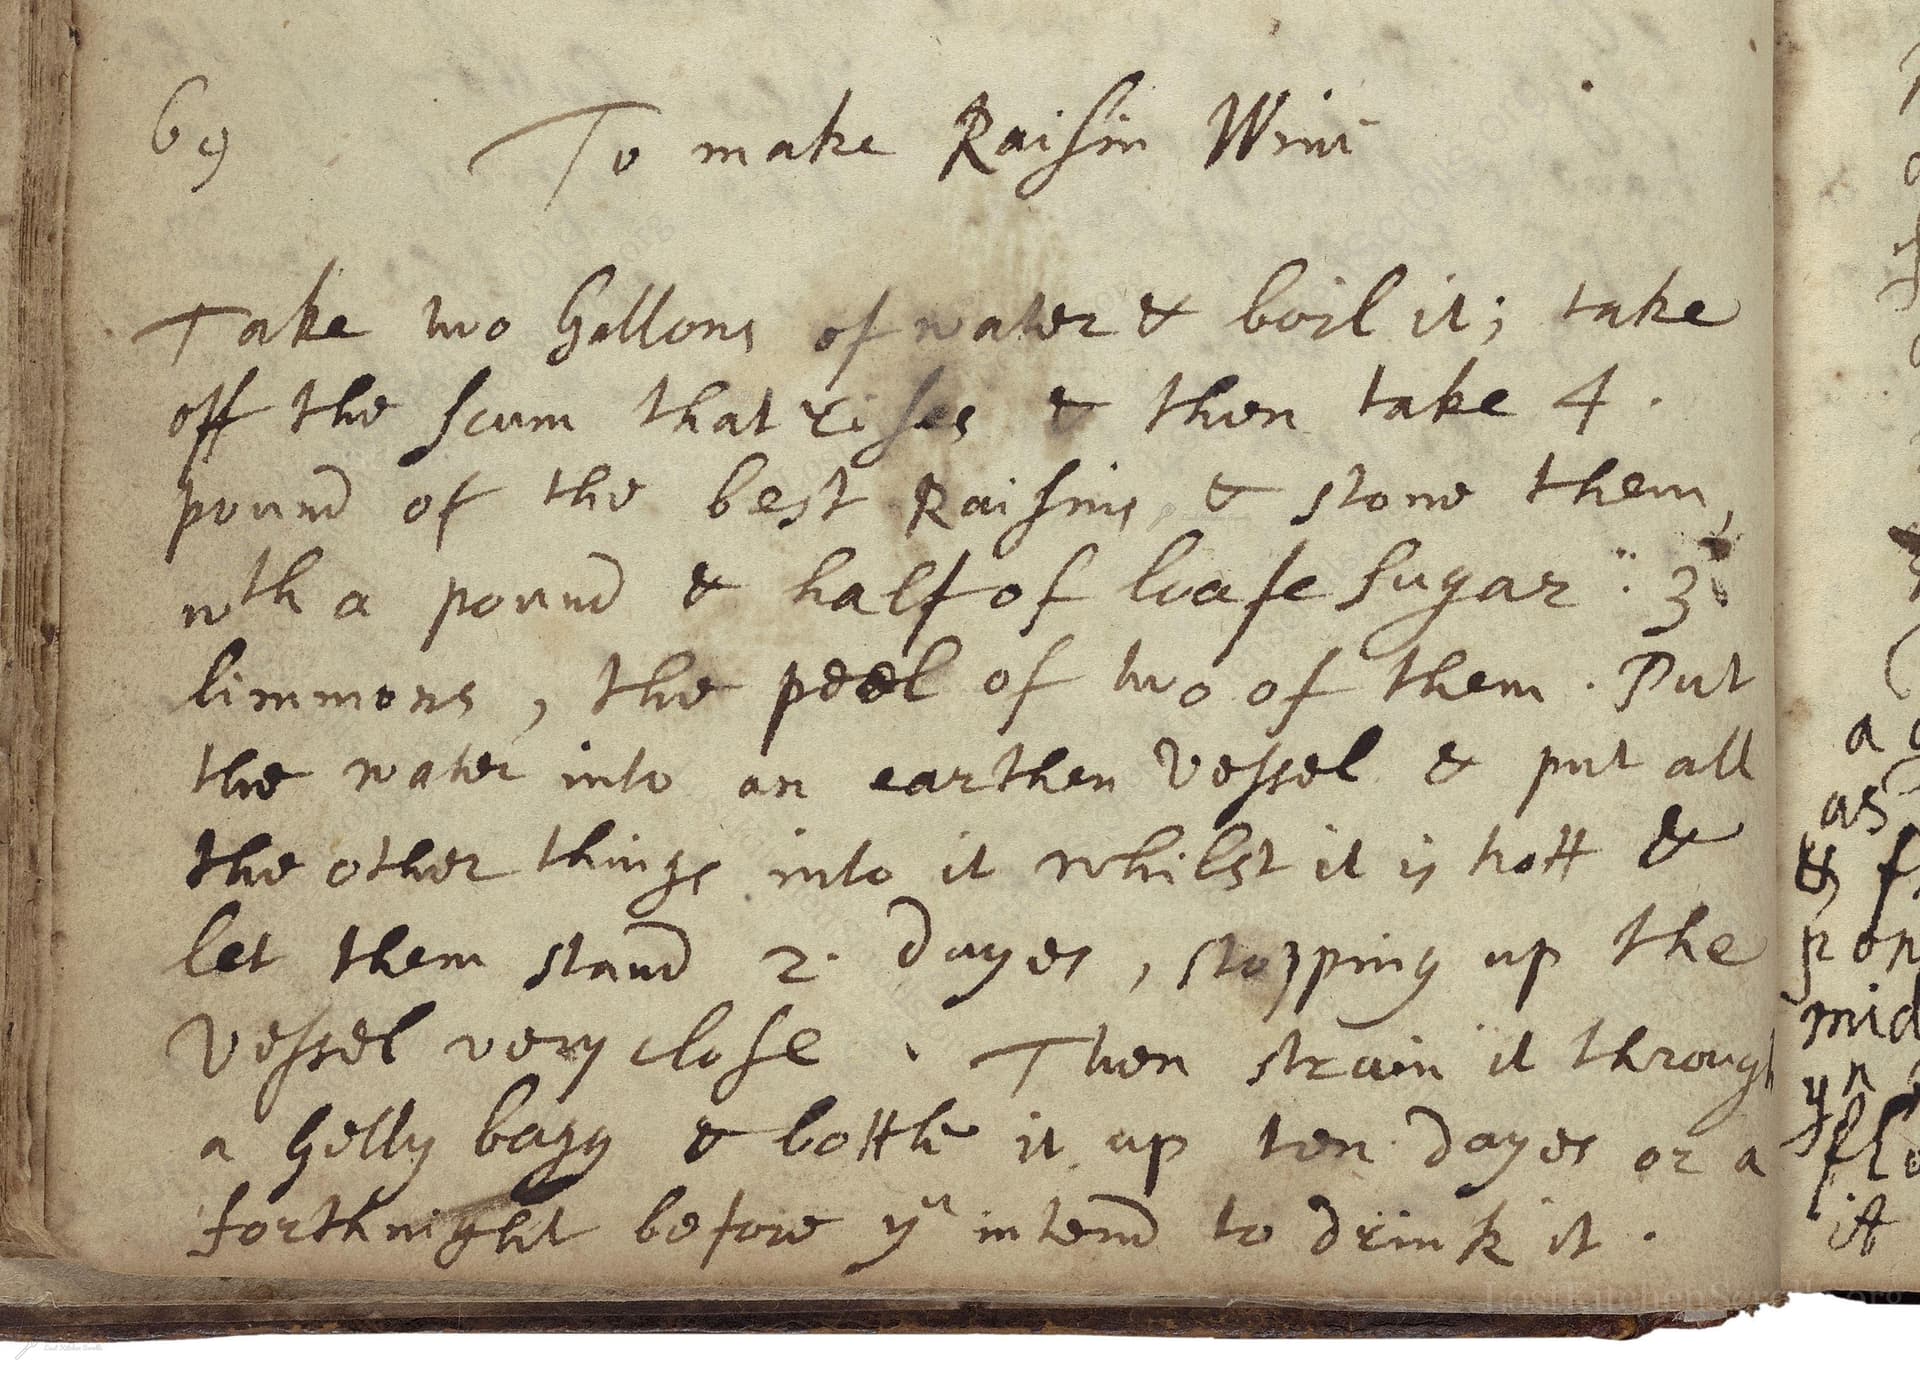 69 To make Raisin Wine
Take two Gallons of water & boil it; take
off the scum that rises & then take 4.
pound of the best Raisins, & stone them,
wth a pound & half of loafe sugar: 3
limmons, the peel of two of them. Put
the water into an earthen Vessel & put all
the other things into it whilst it is hott &
let them stand 2. dayes, stopping up the
Vessel very close. Then strain it through
a Gelly bagg & bottle it up ten dayes or a
forthnight before yu intend to drink it.
a
as
&
pon
mid
yn
it
LostKitchenScrolls.org